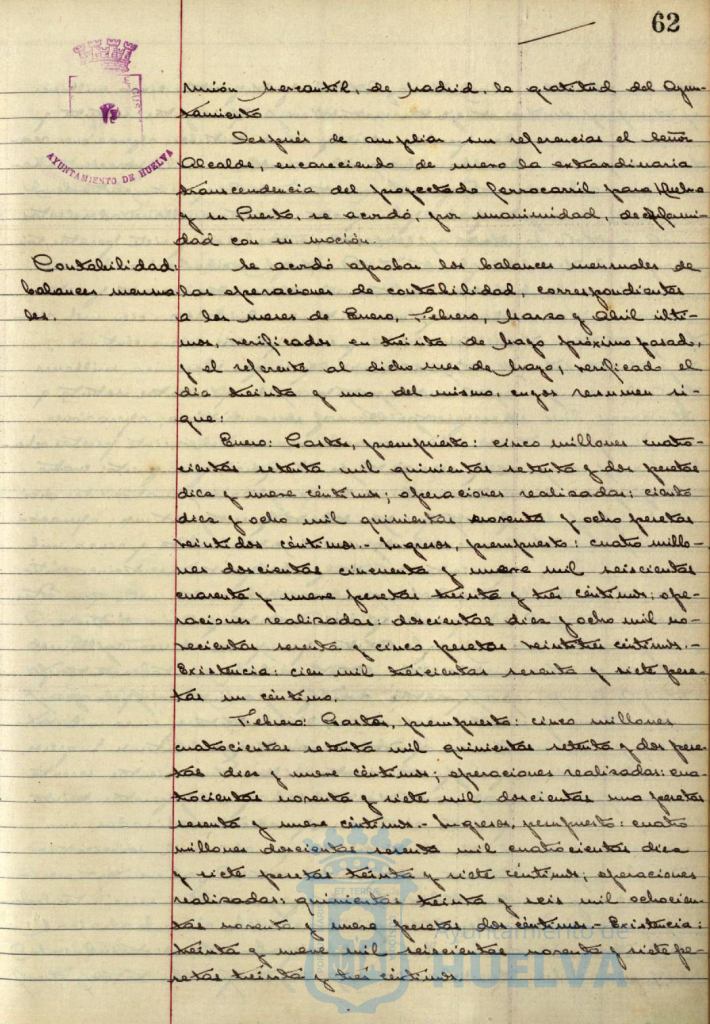 62
AYUNTAMIENTO DE HUELVA
Unión Mercantil, de Madrid, la gratitud del Ayun-
tamiento
Después de ampliar sus referencias el Señor
Alcalde, encareciendo de nuevo la extraordinaria
transcendencia del proyectado ferrocarril para Huelva
y su Puerto, se acordó, por unanimidad, de
dad con su moción.
Contabilidad:
balances mensua
les.
Se acordó aprobar los balances mensuales de
las operaciones de contabilidad, correspondientes
a los meses de Enero, Febrero, Marzo y Abril últi-
mos, verificados en treinta de Mayo próximo pasado,
y el referente al dicho mes de Mayo, verificado el
día treinta y uno del mismo, cuyos resumen si-
gue:
Enero: Gastos, presupuesto: cinco millones cuatro-
cientas setenta mil quinientas setenta y dos pesetas
diez y nueve céntimos; operaciones realizadas: ciento
diez y ocho mil quinientas noventa y ocho pesetas
veintidos céntimos.- Ingresos, presupuesto: cuatro millo-
nes doscientas cincuenta y nueve mil seiscientas
cuarenta y nueve pesetas treinta y tres céntimos; ope-
raciones realizadas: doscientas diez y ocho mil no-
vecientas sesenta y cinco pesetas veintitres céntimos.-
Existencia: cien mil trescientas sesenta y siete pese-
tas un céntimo.
Febrero: Gastos, presupuesto: cinco millones
cuatrocientas setenta mil quinientas setenta y dos pese-
tas diez y nueve céntimos; operaciones realizadas: cua-
trocientas noventa y siete mil doscientas una pesetas
sesenta y nueve céntimos.- Ingresos, presupuesto: cuatro
millones doscientas sesenta mil cuatrocientas diez
y siete pesetas treinta y siete céntimos; operaciones
realizadas: quinientas treinta y seis mil ochocien-
tas noventa y nueve pesetas dos céntimos.- Existencia:
treinta y nueve mil seiscientas noventa y siete pe-
setas treinta y tres céntimos.
Ayuntamiento de
HUELVA